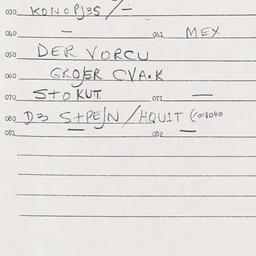 030 KONOPJ35/—
040 — 041 MEX
050 DER VORCU
060 GROJER CVA.K
070 STOKUT 071 —
080 D3 STPEJN/HQUIT (018040
081 — 082 —